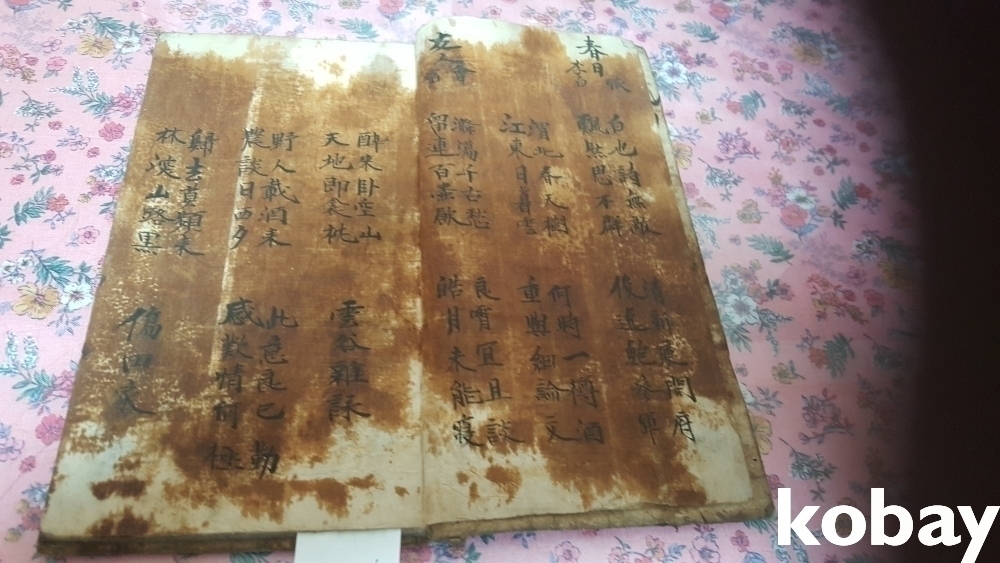 春日
憶
李白
白也詩無敵
飄然思不群
清新庾開府
俊逸鮑參軍
渭北春天樹
江東日暮雲
何時一樽酒
重與細論文
友人會
滌蕩千古愁
留連百壺飮
良宵宜且談
皓月未能寢
醉來臥空山
天地即衾枕
雲谷雜詠
野人載酒來
農談日西夕
此意良已勤
感歎情何極
歸去莫頻來
林深山路黑
傷田家
kobay